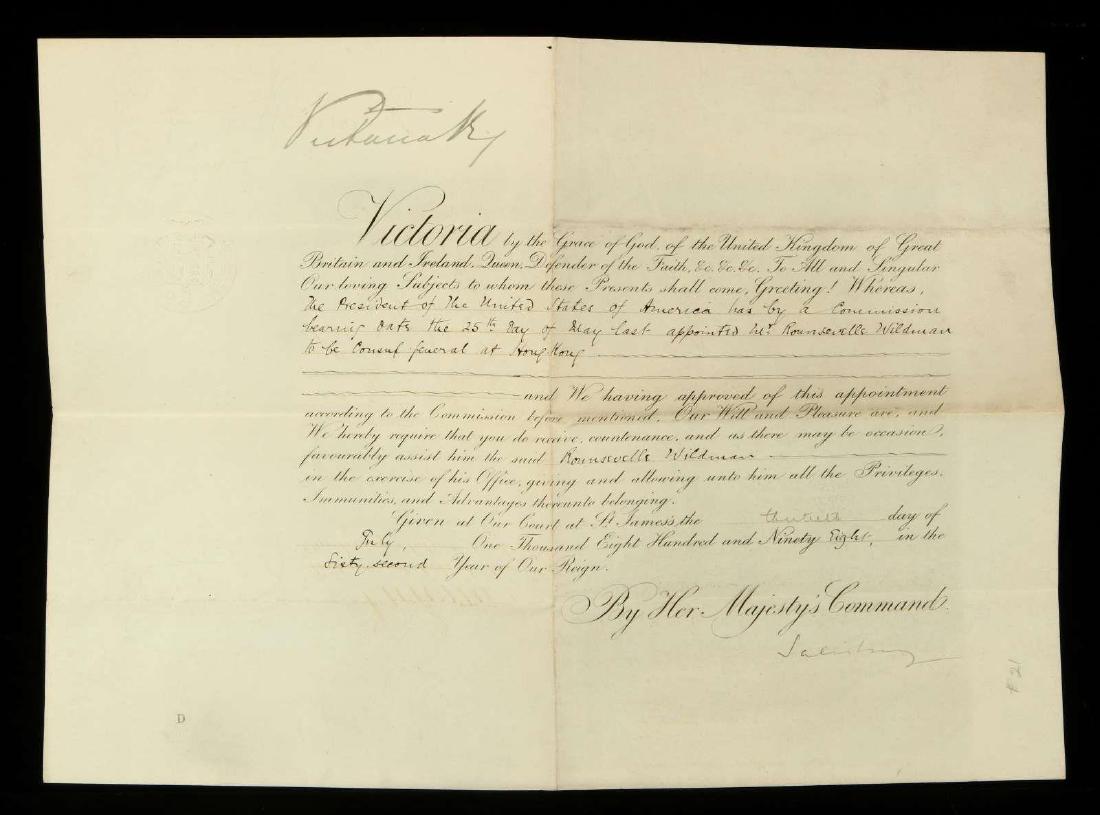 Victoria R I
Victoria by the Grace of God, of the United Kingdom of Great
Britain and Ireland, Queen, Defender of the Faith, &c. &c. &c. To All and Singular
Our loving Subjects to whom these Presents shall come, Greeting! Whereas,
the President of the United States of America has by a Commission
bearing Date the 25th Day of May last appointed Mr Rounsevelle Wildman
to be Consul General at Hong Kong
and We having approved of this appointment
according to the Commission before mentioned, Our Will and Pleasure are, and
We hereby require that you do receive, countenance, and as there may be occasion,
favourably assist him the said Rounsevelle Wildman
in the exercise of his Office, giving and allowing unto him all the Privileges,
Immunities, and Advantages thereunto belonging.
Given at Our Court at St. James's, the thirtieth day of
July, One Thousand Eight Hundred and Ninety Eight, in the
Sixty-second Year of Our Reign.
By Her Majesty's Command.
Salisbury
D
# 21